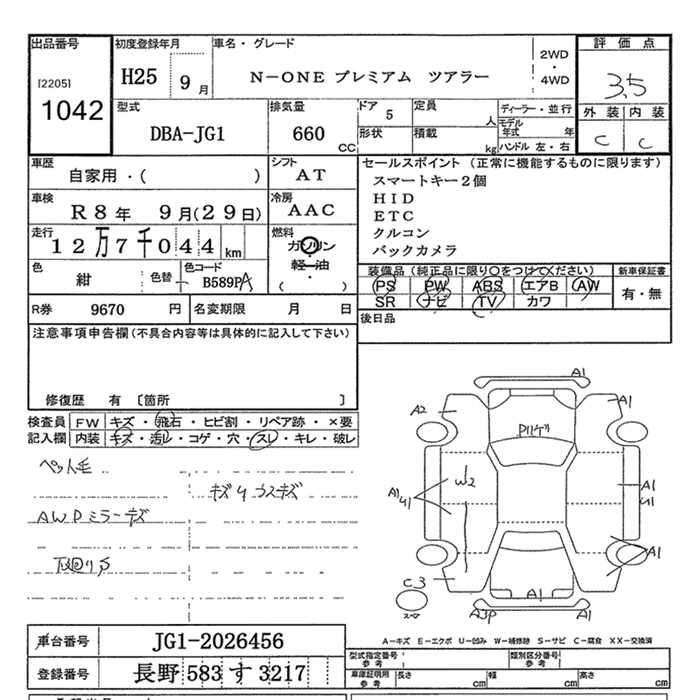 出品番号 初度登録年月 車名・グレード 2WD ・ 4WD 評価点
[2205] H25 9月 N-ONE プレミアム ツアラー 3.5
1042 型式 排気量 ドア 5 定員 人 ディーラー・並行 外装 内装
DBA-JG1 660 CC 形状 積載 kg モデル年式 年 C C
ハンドル 左・右
車歴 自家用・( ) シフト AT セールスポイント (正常に機能するものに限ります)
スマートキー2個
車検 R8年 9月(29日) 冷房 AAC HID
ETC
走行 12万7千044km 燃料 ガソリン 軽油 ・ ( ) クルコン
バックカメラ
色 紺 色替 カラーコード B589PA 装備品 (純正品に限り○をつけてください) 新車保証書
PS PW ABS エアB AW 有・無
SR ナビ TV カワ
R券 9670円 名変期限 月 日 後日品
注意事項申告欄(不具合内容等は具体的に記入して下さい)
修復歴 有 〔箇所 〕
検査員 FW キズ・飛石・ヒビ割・リペア跡・×要
記入欄 内装 キズ・汚レ・コゲ・穴・スレ・キレ・破レ
ペット毛
AWPミラーキズ
下廻りサ
A1
A2 A1
W2
A1 U1 A1 U1
A1
C3 A1
スペア A3P A1
A-キズ E-エクボ U-凹み W-補修跡 S-サビ C-腐食 XX-交換済
車台番号 JG1-2026456 型式指定番号 参考 類別区分番号 参考
登録番号 長野 583 す 3217 車庫証明用 参考 長さ cm 幅 cm 高さ cm